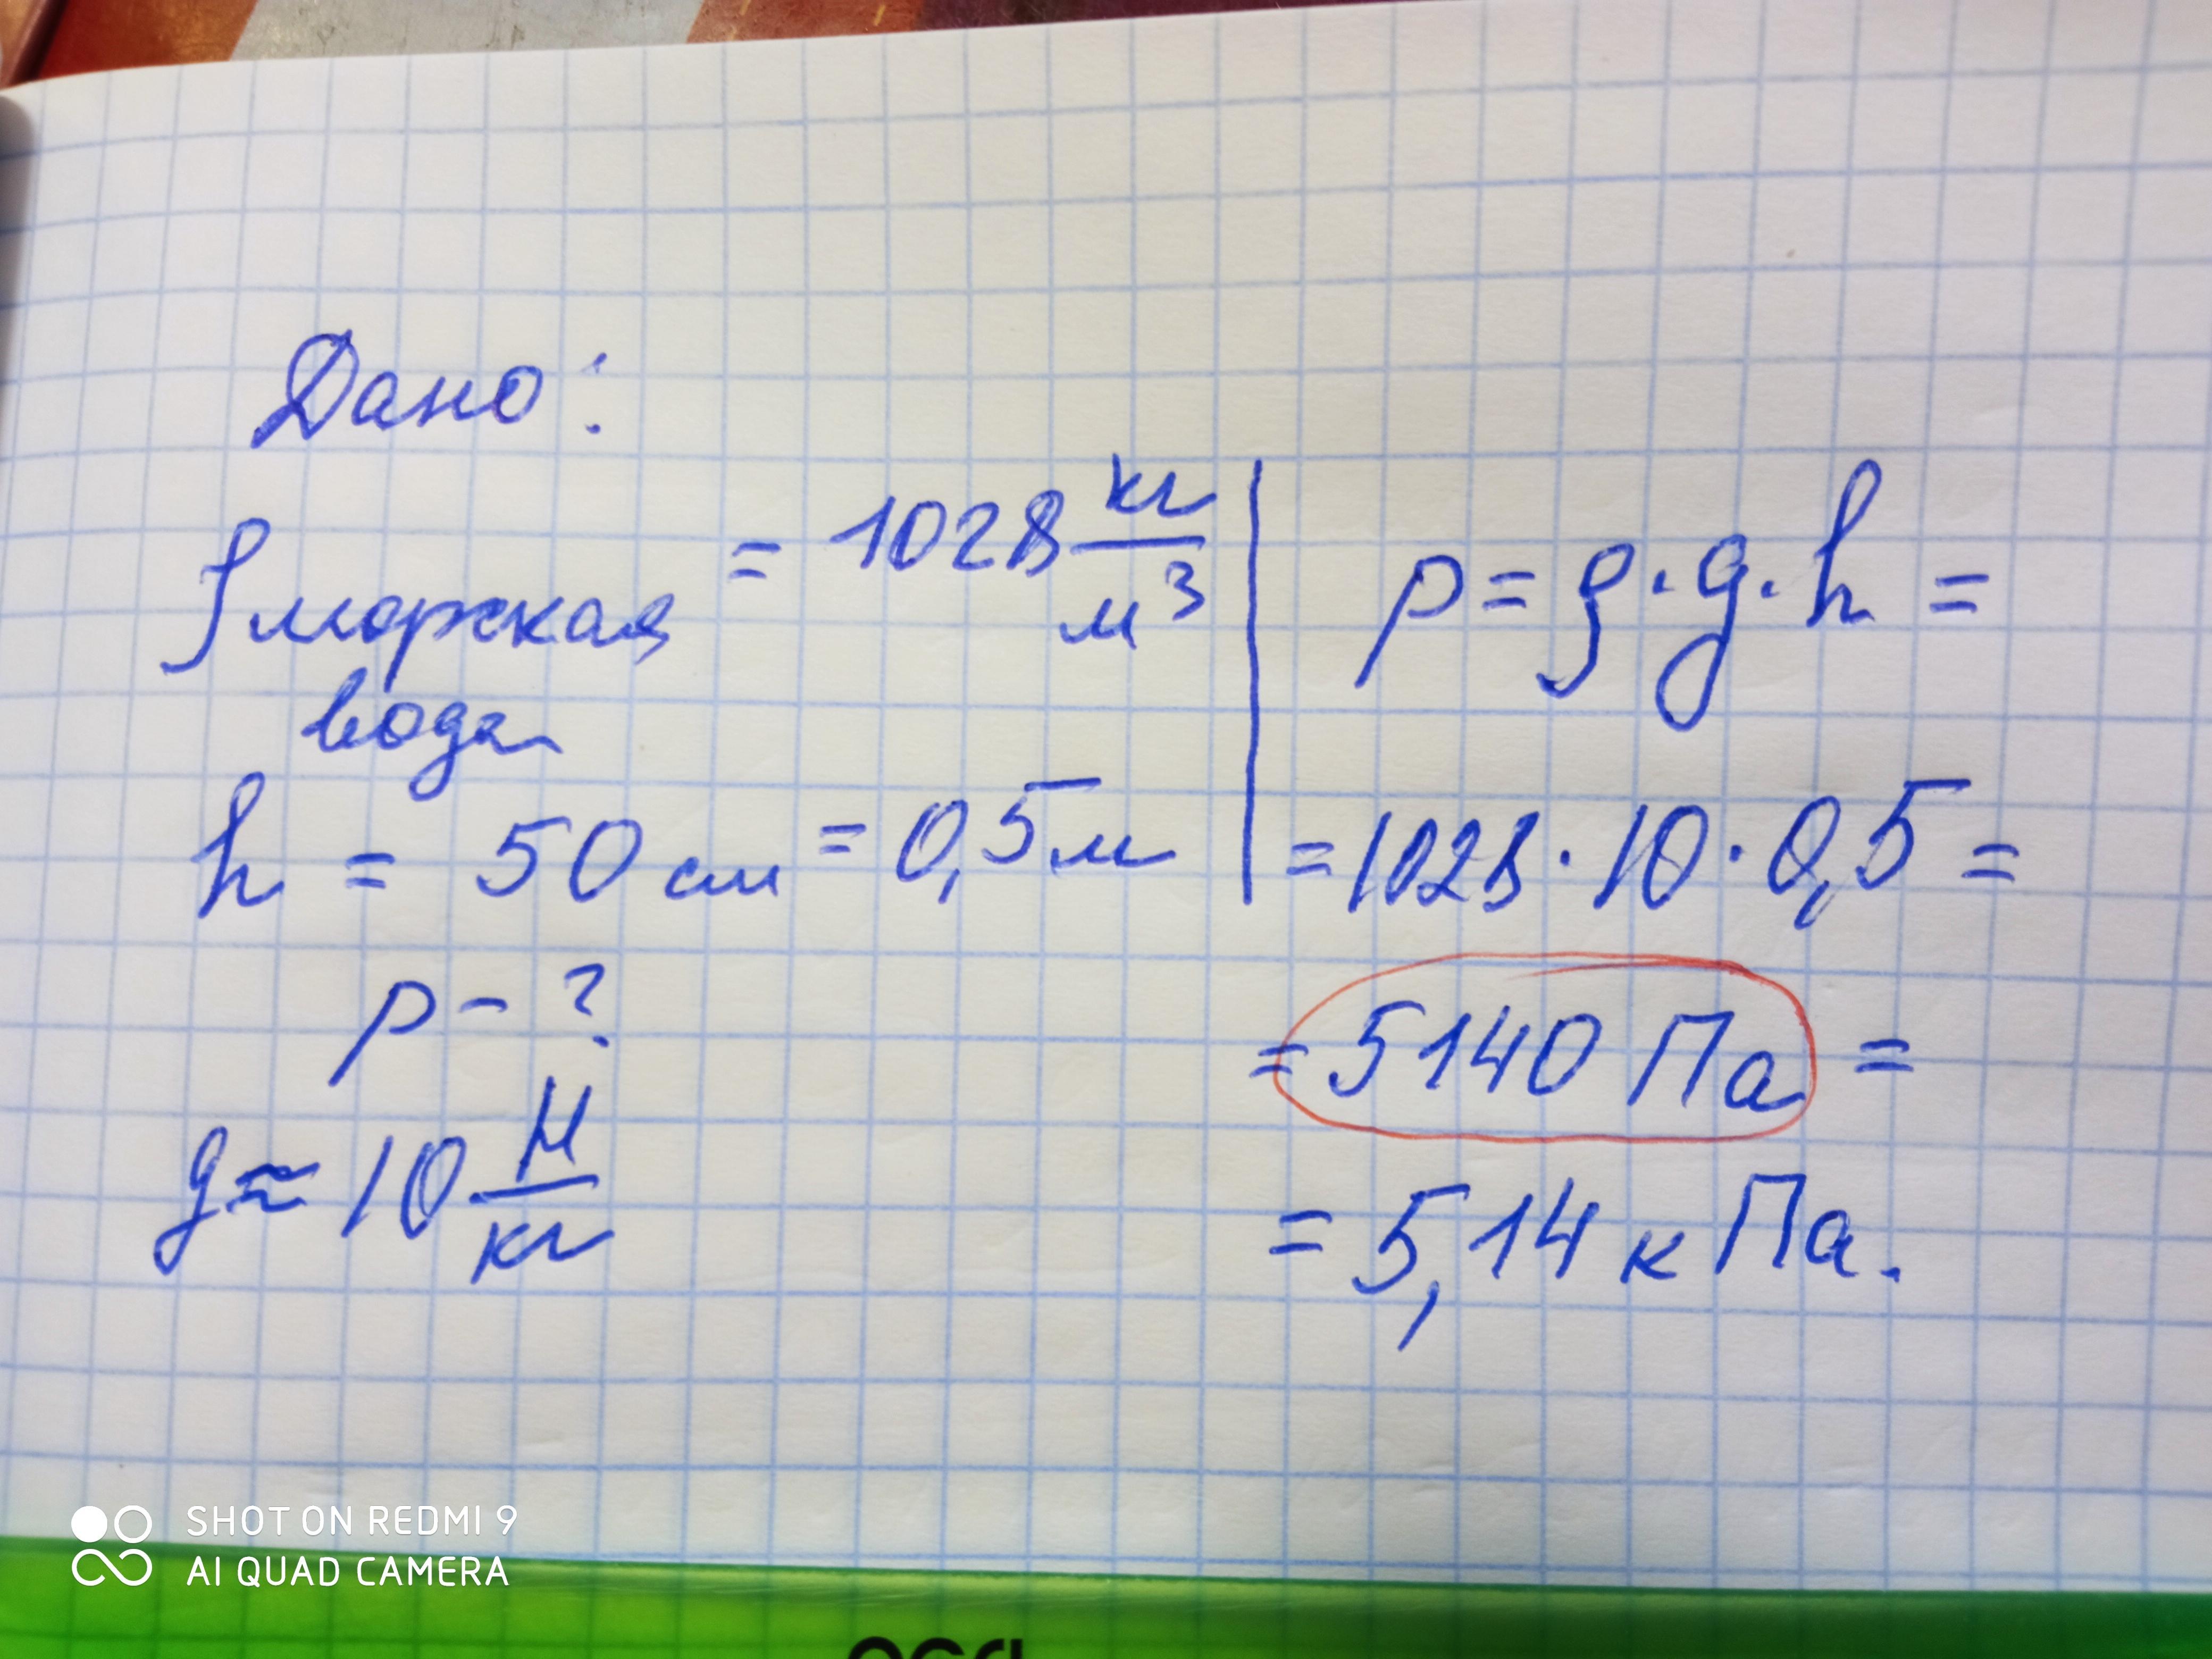 Дано:
ρ морская вода = 1028 кг/м³
h = 50 см = 0,5 м
p - ?
g ≈ 10 Н/кг
p = ρ · g · h =
= 1028 · 10 · 0,5 =
= 5140 Па =
= 5,14 кПа.
SHOT ON REDMI 9
AI QUAD CAMERA